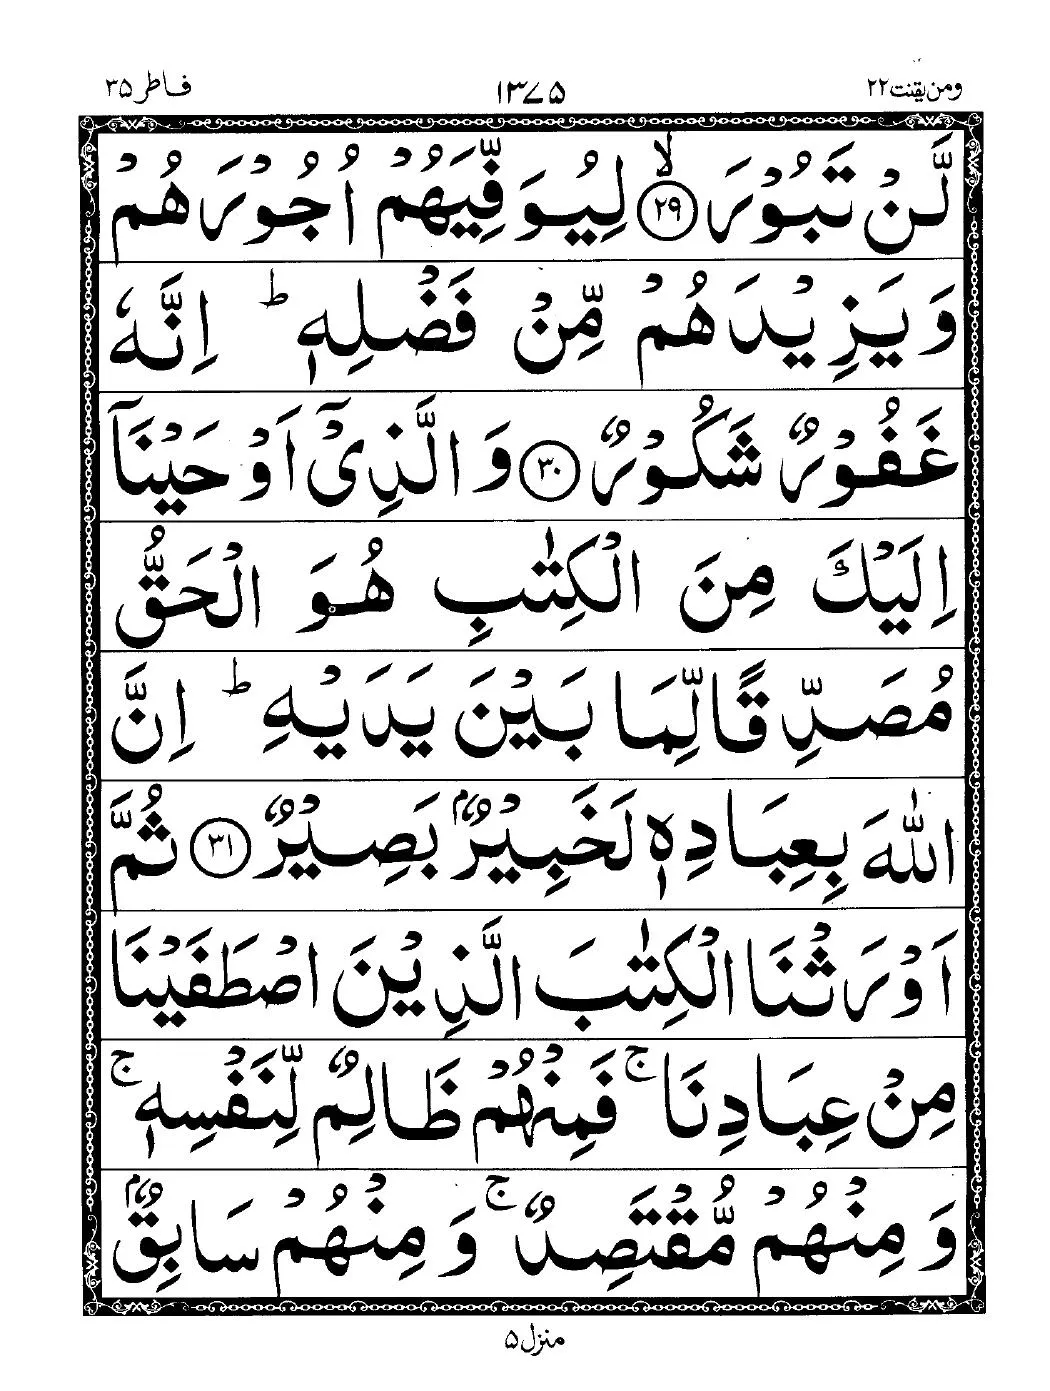 ومن یقنت ۲۲ ۱۳۷۵ فاطر ۳۵
لَّنْ تَبُوْرَ ۙ﴿۲۹﴾ لِیُوَفِّیَهُمْ اُجُوْرَهُمْ
وَیَزِیْدَهُمْ مِّنْ فَضْلِهٖ ؕ اِنَّهٗ
غَفُوْرٌ شَكُوْرٌ ﴿۳۰﴾ وَالَّذِیْۤ اَوْحَیْنَاۤ
اِلَیْكَ مِنَ الْكِتٰبِ هُوَ الْحَقُّ
مُصَدِّقًا لِّمَا بَیْنَ یَدَیْهِ ؕ اِنَّ
اللّٰهَ بِعِبَادِهٖ لَخَبِیْرٌۢ بَصِیْرٌ ﴿۳۱﴾ ثُمَّ
اَوْرَثْنَا الْكِتٰبَ الَّذِیْنَ اصْطَفَیْنَا
مِنْ عِبَادِنَا ۚ فَمِنْهُمْ ظَالِمٌ لِّنَفْسِهٖ ۚ
وَمِنْهُمْ مُّقْتَصِدٌ ۚ وَمِنْهُمْ سَابِقٌۢ
منزل ۵